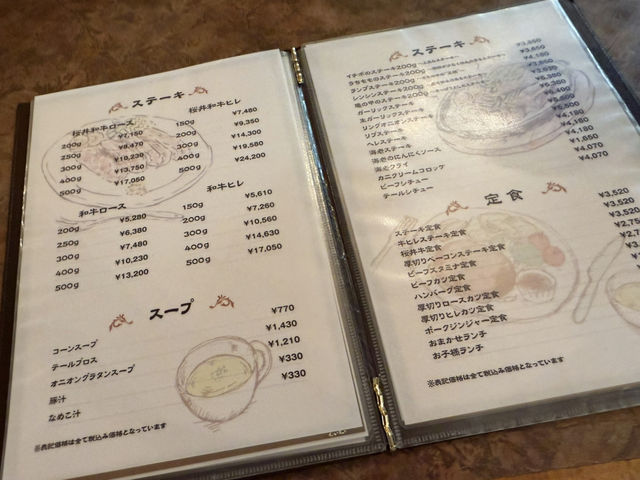 ステーキ
桜井和牛ロース
200g ¥7,150
250g ¥8,470
300g ¥10,230
400g ¥13,750
500g ¥17,050
桜井和牛ヒレ
150g ¥7,480
200g ¥9,350
300g ¥14,300
400g ¥19,580
500g ¥24,200
和牛ロース
200g ¥5,280
250g ¥6,380
300g ¥7,480
400g ¥10,230
500g ¥13,200
和牛ヒレ
150g ¥5,610
200g ¥7,260
300g ¥10,560
400g ¥14,630
500g ¥17,050
スープ
コーンスープ ¥770
テールブロス ¥1,430
オニオングラタンスープ ¥1,210
豚汁 ¥330
なめこ汁 ¥330
※表記価格は全て税込み価格となっています
ステーキ
イチボのステーキ200g
うちモモのステーキ200g
ランプステーキ200g
シンシンステーキ200g
亀の甲のステーキ200g
ガーリックステーキ
生ガーリックステーキ
リングオニオンステーキ
リブステーキ
ヘレステーキ
海老ステーキ
海老のにんにくソース
海老フライ
カニクリームコロッケ
ビーフシチュー
テールシチュー
¥4,180
¥4,180
¥4,180
¥1,650
¥4,070
¥4,070
定食
ステーキ定食 ¥3,520
牛ヒレステーキ定食 ¥3,520
桜井牛定食 ¥3,520
厚切りベーコンステーキ定食
ビーフスタミナ定食
ビーフカツ定食
ハンバーグ定食
厚切りロースカツ定食
厚切りヒレカツ定食
ポークジンジャー定食
おまかせランチ
お子様ランチ
※表記価格は全て税込み価格となっています